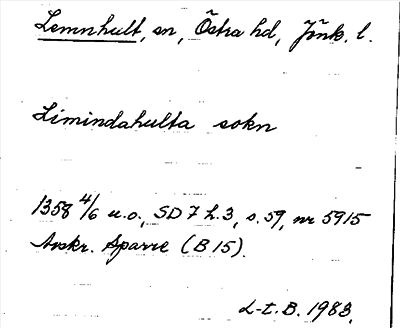 Lemnhult, sn, Östra hd, Jönk. l.
Limindahulta sokn
1358 4/6 u.o., SD 7 h.3, s.59, nr 5915
Avskr. Sparre (B 15).
L-t. B. 1983.